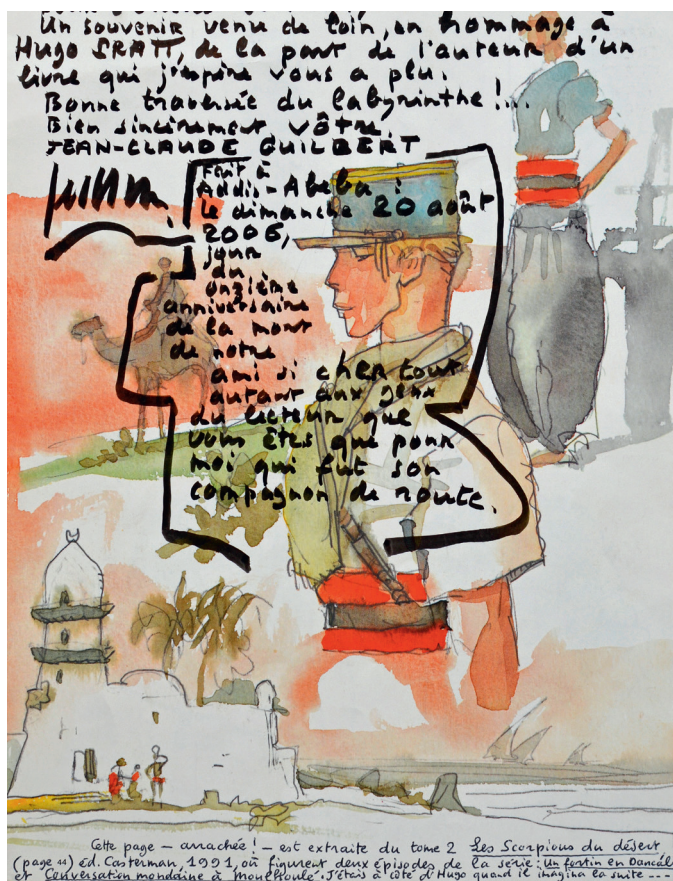 Un souvenir venu de loin, en hommage à
Hugo PRATT, de la part de l'auteur d'un
livre qui j'espère vous a plu.
Bonne traversée du labyrinthe !...
Bien sincèrement vôtre,
JEAN-CLAUDE GUILBERT
Fait à
Addis-Abeba :
le dimanche 20 août
2006,
jour
du
onzième
anniversaire
de la mort
de notre
ami si cher tout
autant aux yeux
du lecteur que
vous êtes que pour
moi qui fut son
compagnon de route.
Cette page – arrachée ! – est extraite du tome 2 Les Scorpions du désert
(page 44) éd. Casterman, 1991, où figurent deux épisodes de la série : Un fortin en Dancalie
et Conversation mondaine à Moulhoulé. J'étais à côté d'Hugo quand il imagina la suite ---